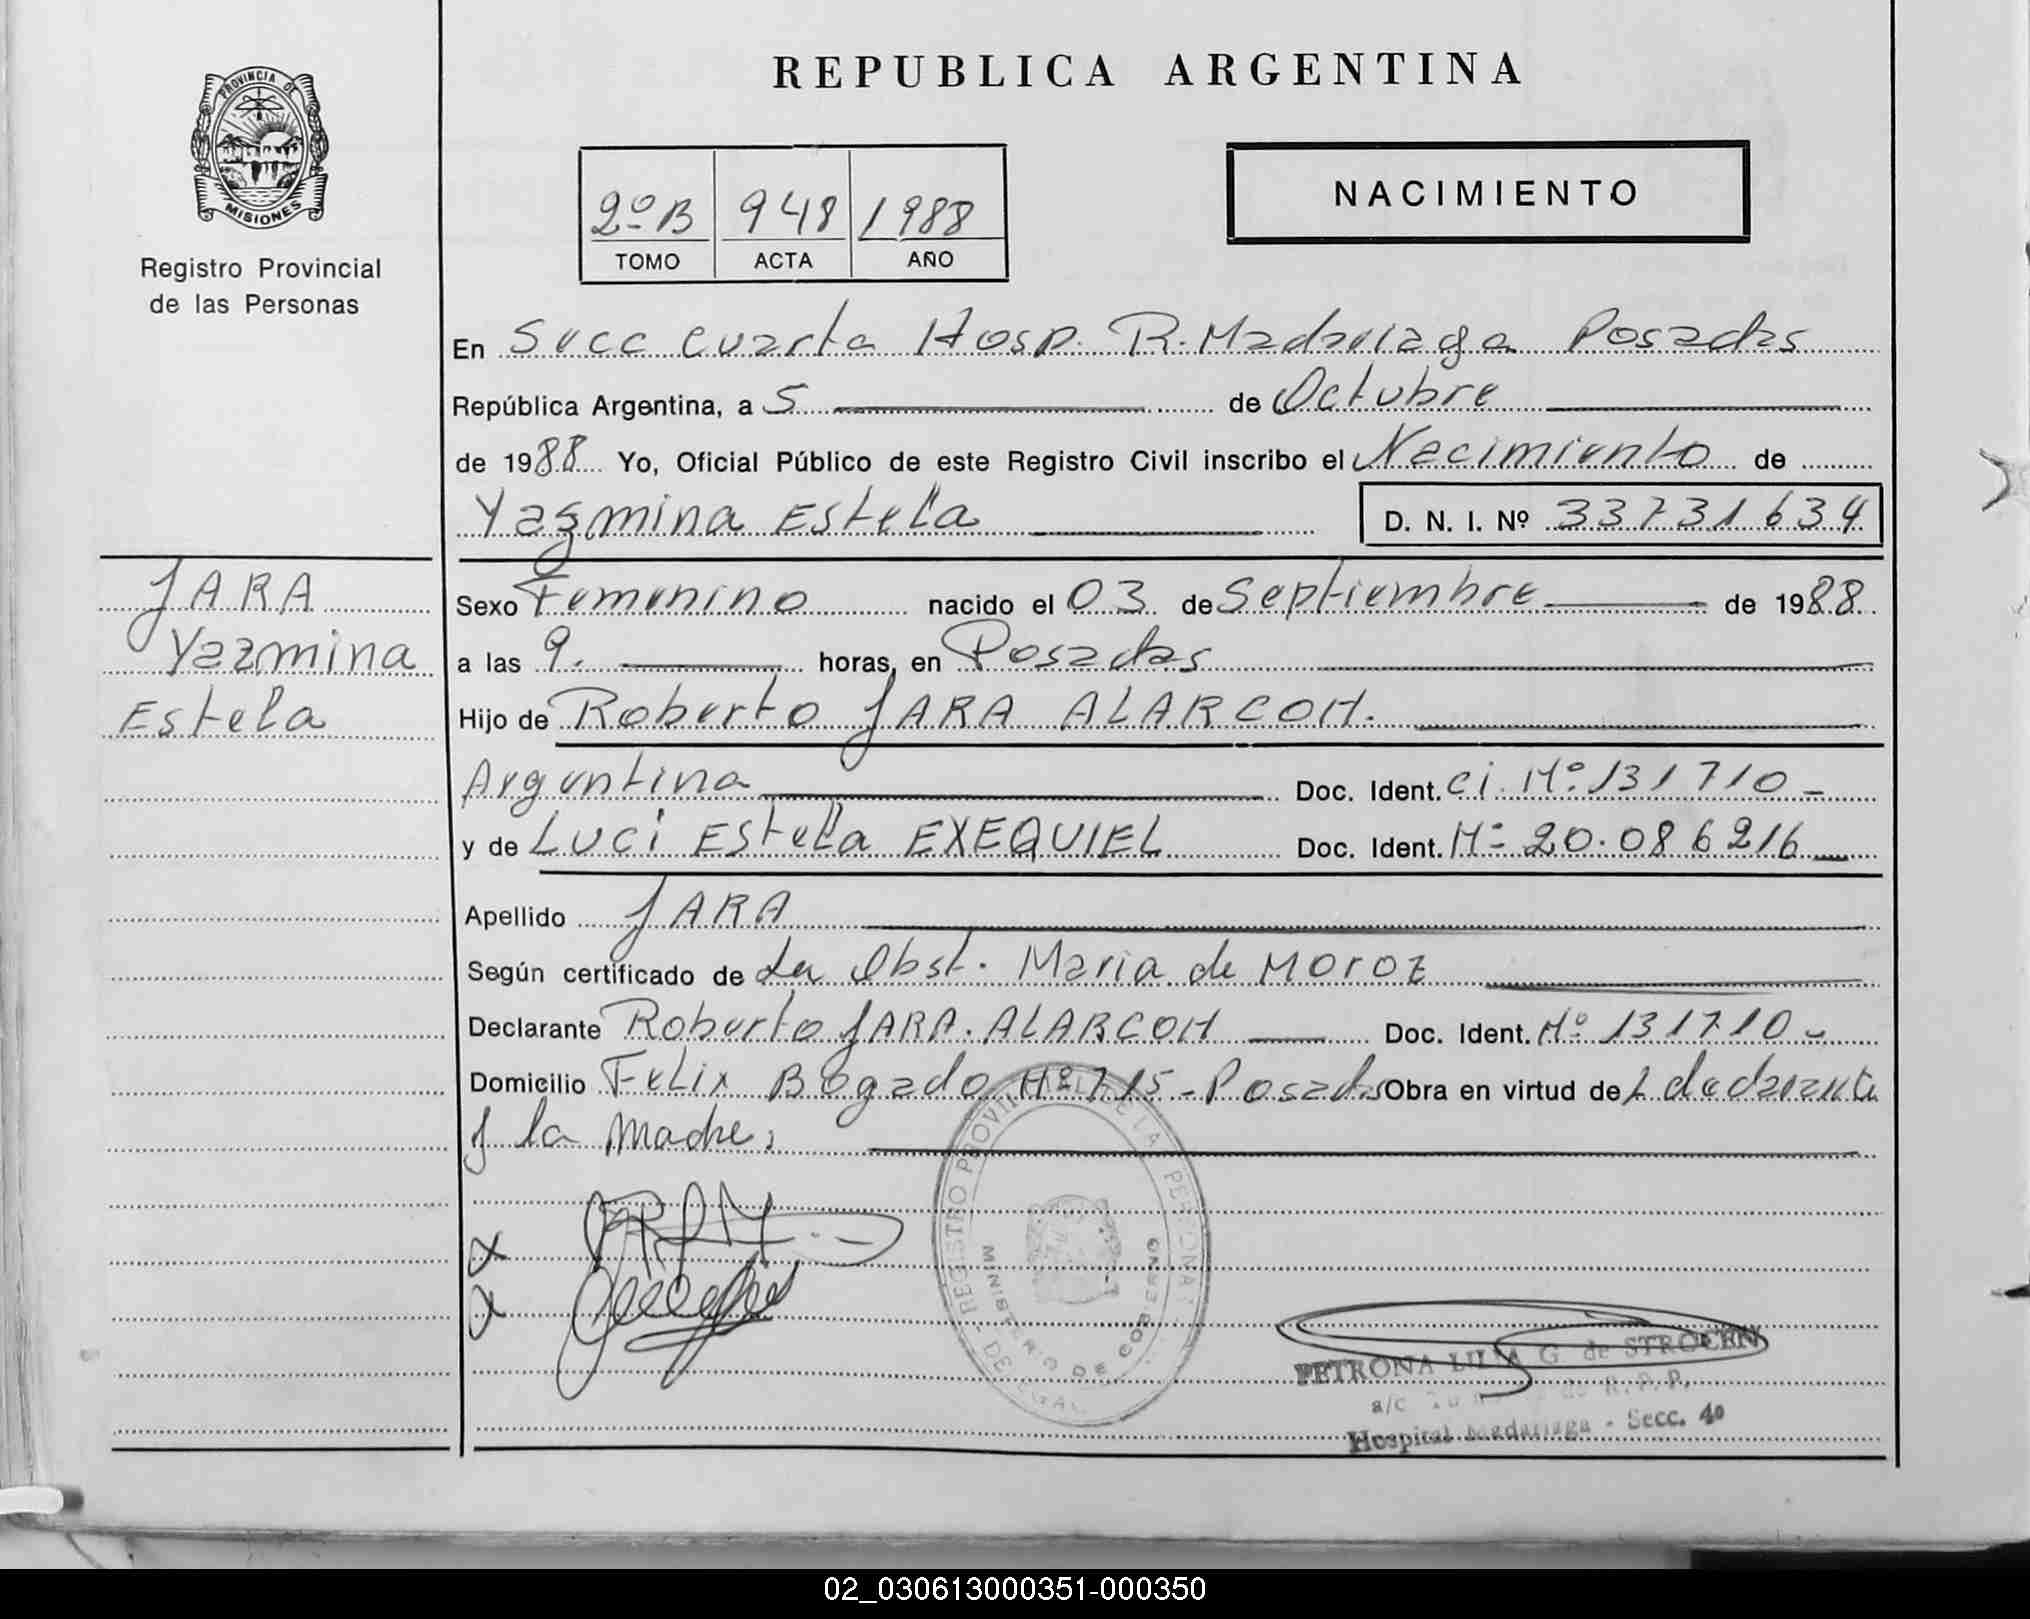 PROVINCIA DE
MISIONES
Registro Provincial
de las Personas
JARA
Yazmina
Estela
REPUBLICA ARGENTINA
2º B 948 1988
TOMO ACTA AÑO
NACIMIENTO
En Secc cuarta Hosp. R. Madariaga Posadas
República Argentina, a 5 de Octubre
de 1988 Yo, Oficial Público de este Registro Civil inscribo el Nacimiento de
Yazmina Estela D. N. I. Nº 33731634
Sexo Femenino nacido el 03 de Septiembre de 1988
a las 9. horas, en Posadas
Hijo de Roberto JARA ALARCON.
Argentina Doc. Ident. Ci. Nº 131710-
y de LUCI Estela EXEQUIEL Doc. Ident. Nº 20.086216
Apellido JARA
Según certificado de La Obst. Maria de Moroz
Declarante Roberto JARA. ALARCON Doc. Ident. Nº 131710-
Domicilio Felix Bogado Nº 715 - Posadas Obra en virtud de L declarante
y la madre.
REGISTRO PROVINCIAL DE LAS PERSONAS
MINISTERIO DE GOBIERNO
PETRONA LILIA G. de STROCEN
a/c de R. P. P.
Hospital Madariaga - Secc. 4º
02_030613000351-000350